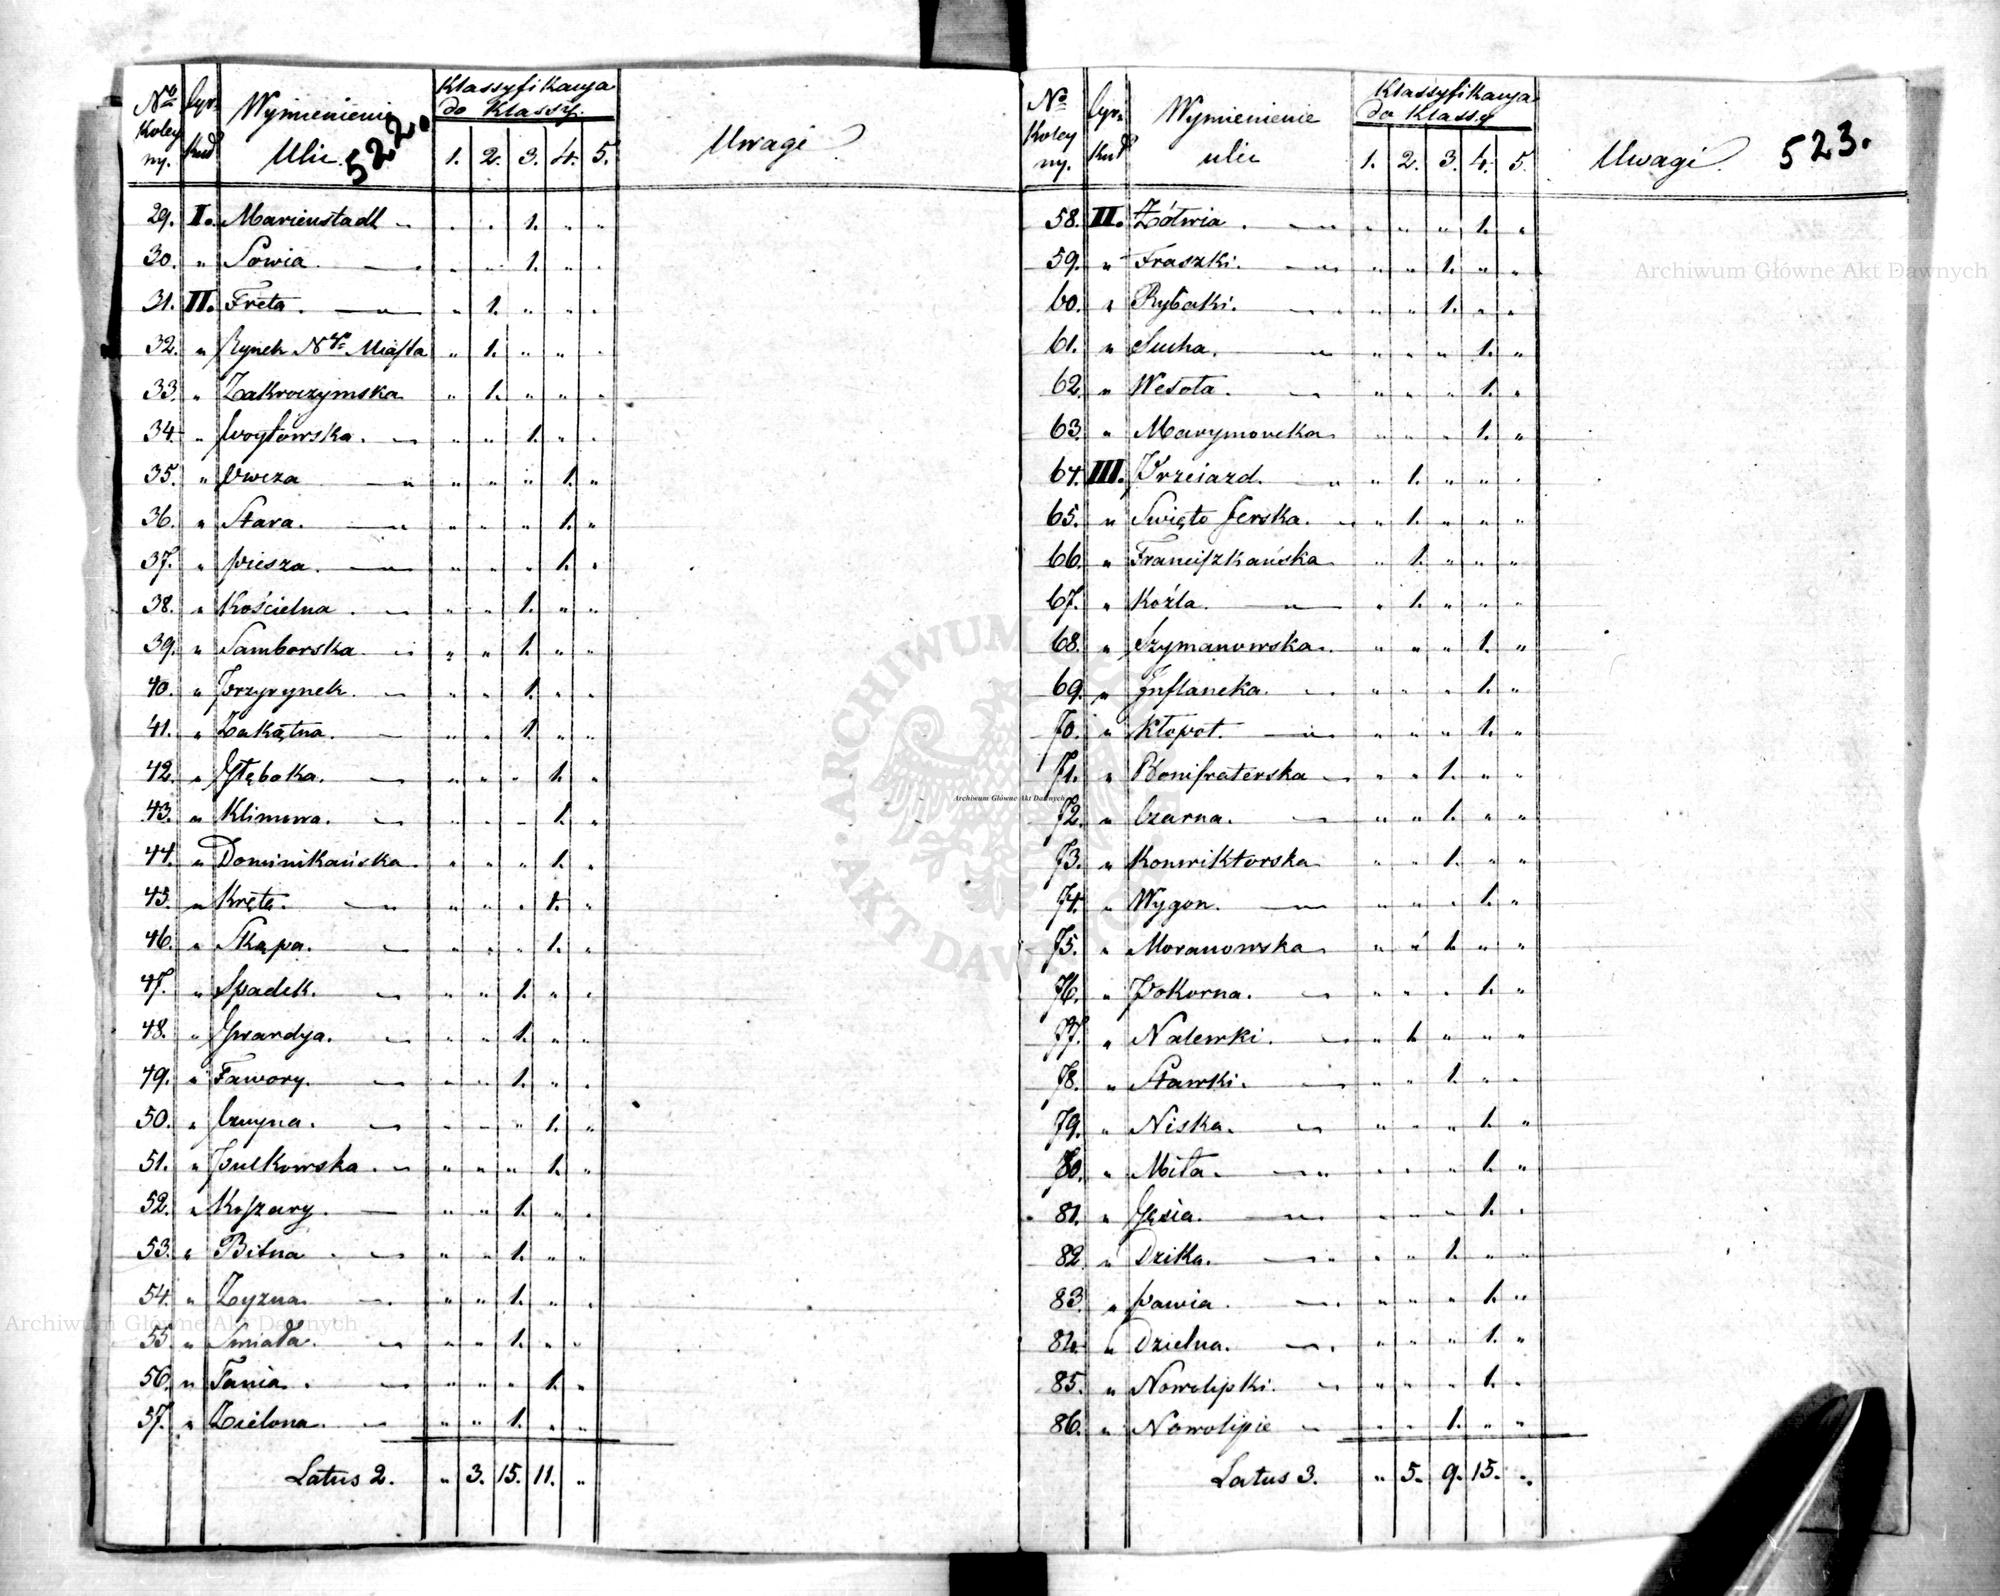 No Koley ny. | Cyrkuł | Wymienienie Ulic | Klassyfikacya do Klassy. 1. 2. 3. 4. 5. | Uwagi
522.
29. I. Marienstadt — „ „ 1. „ „
30. „ Sowia. — „ „ 1. „ „
31. II. Freta. — „ 1. „ „ „
32. „ Rynek Ngo Miasta „ 1. „ „ „
33. „ Zakroczymska „ 1. „ „ „
34. „ Woytowska. — „ „ 1. „ „
35. „ Owcza — „ „ „ 1. „
36. „ Stara. — „ „ „ 1. „
37. „ Piesza. — „ „ „ 1. „
38. „ Kościelna. — „ „ 1. „ „
39. „ Samborska. — „ „ 1. „ „
40. „ Przyrynek. — „ „ 1. „ „
41. „ Zakątna. — „ „ 1. „ „
42. „ Głęboka. — „ „ „ 1. „
43. „ Klimowa. — „ „ „ 1. „
44. „ Dominikańska. „ „ „ 1. „
45. „ Kręta. — „ „ „ 1. „
46. „ Skąpa. — „ „ „ 1. „
47. „ Spadek. — „ „ 1. „ „
48. „ Gwardya. — „ „ 1. „ „
49. „ Fawory. — „ „ 1. „ „
50. „ Czuyna. — „ „ „ 1. „
51. „ Pulkowska. — „ „ „ 1. „
52. „ Koszary. — „ „ 1. „ „
53. „ Bitna. — „ „ 1. „ „
54. „ Zyzna. — „ „ 1. „ „
55. „ Smiała. — „ „ 1. „ „
56. „ Tania. — „ „ „ 1. „
57. „ Zielona. — „ „ 1. „ „
Latus 2. „ 3. 15. 11. „
No Koley ny. | Cyrkuł | Wymienienie ulic | Klassyfikacya do Klassy 1. 2. 3. 4. 5. | Uwagi.
523.
58. II. Żółwia. — „ „ „ 1. „
59. „ Fraszki. — „ „ 1. „ „
60. „ Rybaki. — „ „ 1. „ „
61. „ Sucha. — „ „ „ 1. „
62. „ Wesoła. — „ „ „ 1. „
63. „ Marymoncka „ „ „ 1. „
64. III. Przeiazd. — „ 1. „ „ „
65. „ Swięto Jerska. — „ 1. „ „ „
66. „ Franciszkańska „ 1. „ „ „
67. „ Koźla. — „ 1. „ „ „
68. „ Szymanowska. „ „ „ 1. „
69. „ Inflancka. — „ „ „ 1. „
70. „ Kłopot. — „ „ „ 1. „
71. „ Bonifraterska — „ „ 1. „ „
72. „ Czarna. — „ „ 1. „ „
73. „ Konwiktorska „ „ 1. „ „
74. „ Wygon. — „ „ „ 1. „
75. „ Moranowska „ „ 1. „ „
76. „ Pokorna. — „ „ „ 1. „
77. „ Nalewki. — „ 1. „ „ „
78. „ Stawki. — „ „ 1. „ „
79. „ Niska. — „ „ „ 1. „
80. „ Miła. — „ „ „ 1. „
81. „ Gęsia. — „ „ „ 1. „
82. „ Dzika. — „ „ 1. „ „
83. „ Pawia. — „ „ „ 1. „
84. „ Dzielna. — „ „ „ 1. „
85. „ Nowolipki. — „ „ „ 1. „
86. „ Nowolipie — „ „ 1. „ „
Latus 3. „ 5. 9. 15. „
Archiwum Główne Akt Dawnych
Archiwum Główne Akt Dawnych
Archiwum Główne Akt Dawnych